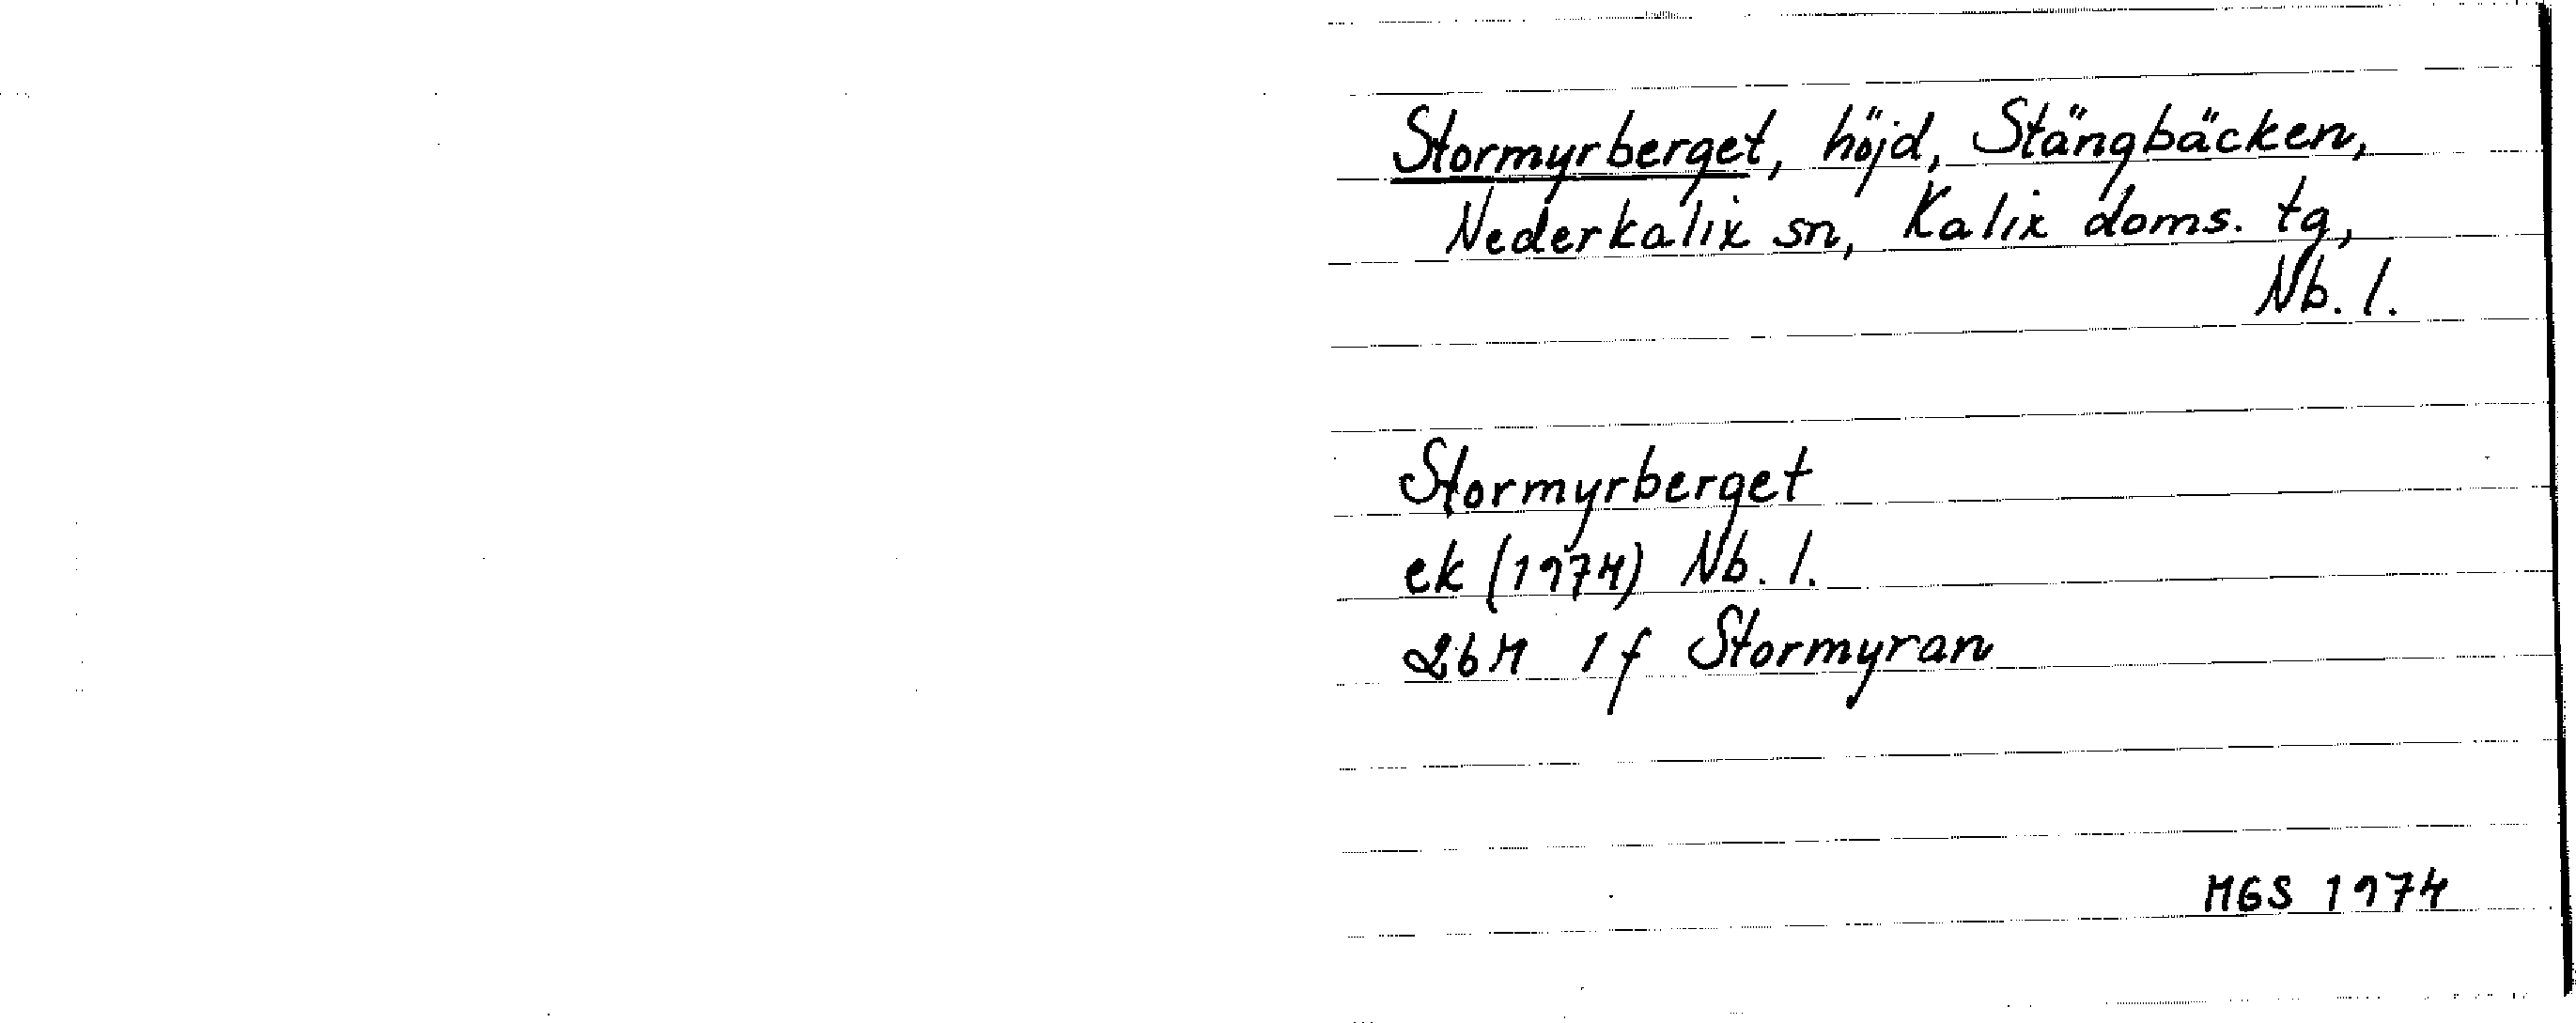 Stormyrberget, höjd, Stängbäcken,
Nederkalix sn, Kalix doms. tg,
Nb. l.
Stormyrberget
ek (1974) Nb. l.
26M 1f Stormyran
MGS 1974